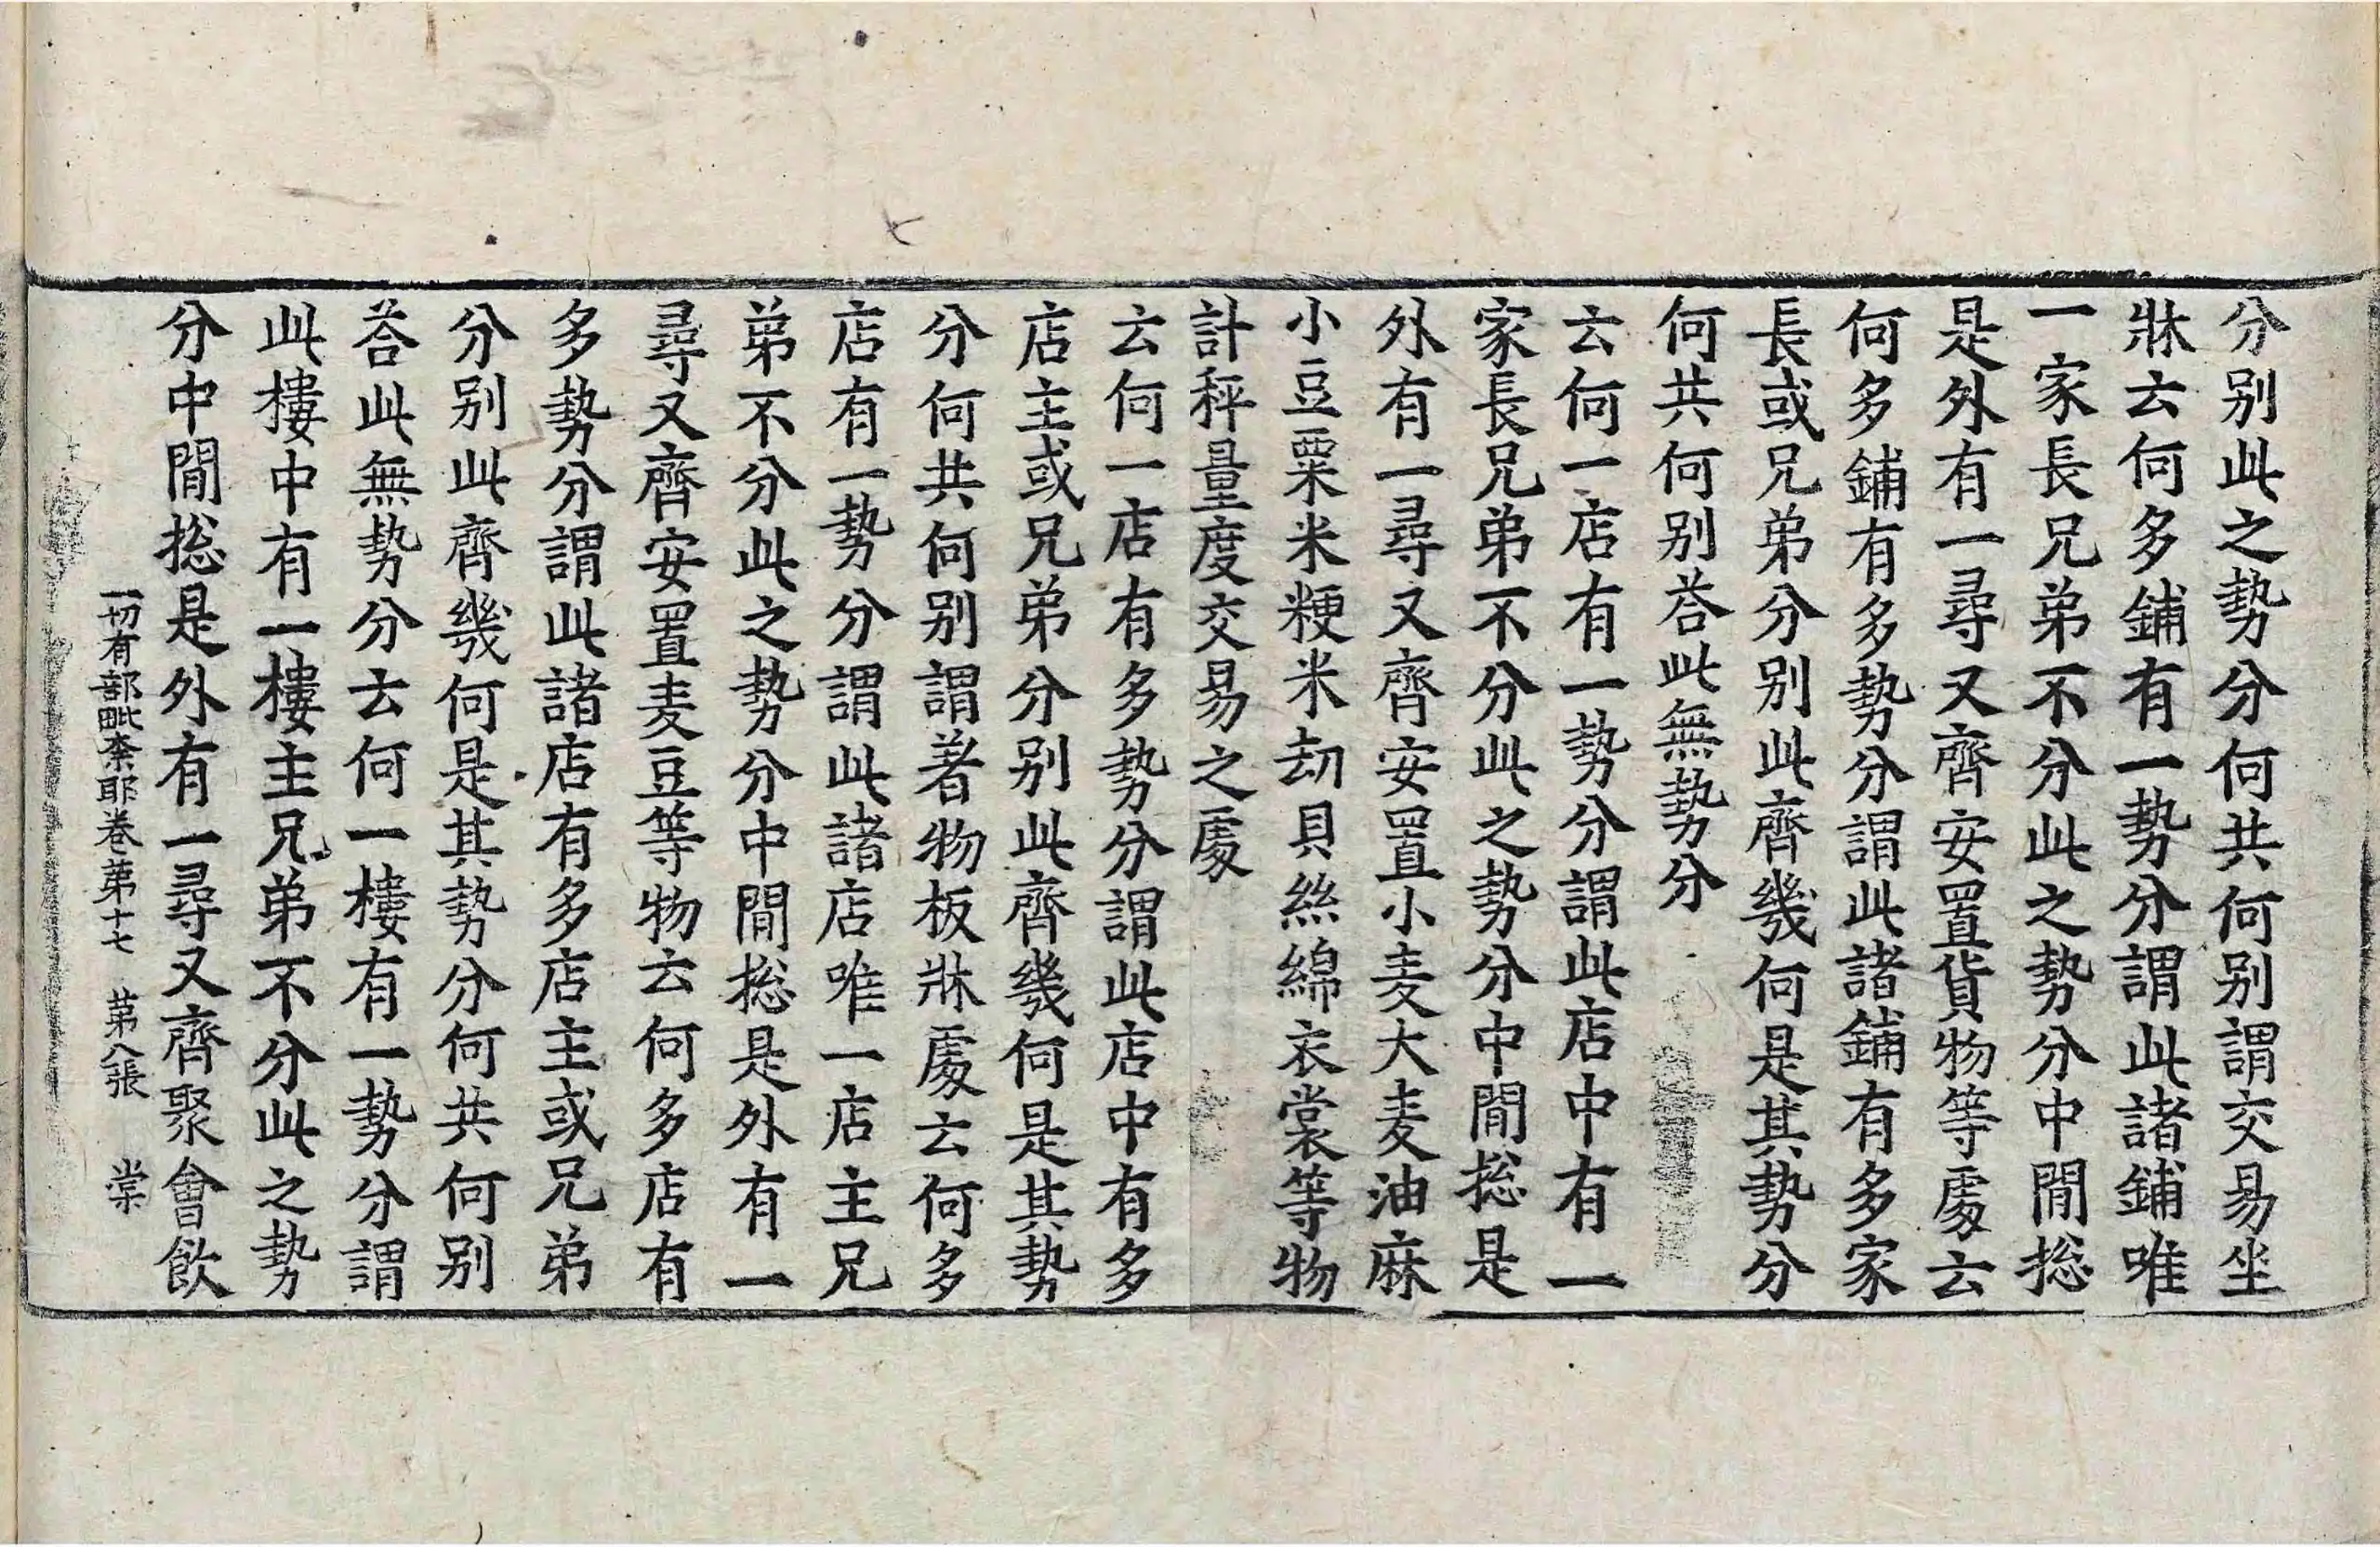 分别此之勢分何共何别謂交易坐
牀云何多鋪有一勢分謂此諸鋪唯
一家長兄弟不分此之勢分中間捴
是外有一尋又齊安置貨物等處云
何多鋪有多勢分謂此諸鋪有多家
長或兄弟分别此齊幾何是其勢分
何共何别荅此無勢分
云何一店有一勢分謂此店中有一
家長兄弟不分此之勢分中間捴是
外有一尋又齊安置小麦大麦油麻
小豆粟米粳米劫貝絲綿衣裳等物
計秤量度交易之處
云何一店有多勢分謂此店中有多
店主或兄弟分别此齊幾何是其勢
分何共何别謂著物板牀處云何多
店有一勢分謂此諸店唯一店主兄
弟不分此之勢分中間捴是外有一
尋又齊安置麦豆等物云何多店有
多勢分謂此諸店有多店主或兄弟
分别此齊幾何是其勢分何共何别
荅此無勢分云何一樓有一勢分謂
此樓中有一樓主兄弟不分此之勢
分中間捴是外有一尋又齊聚會飲
一切有部毗柰耶卷第十七 第八張 棠